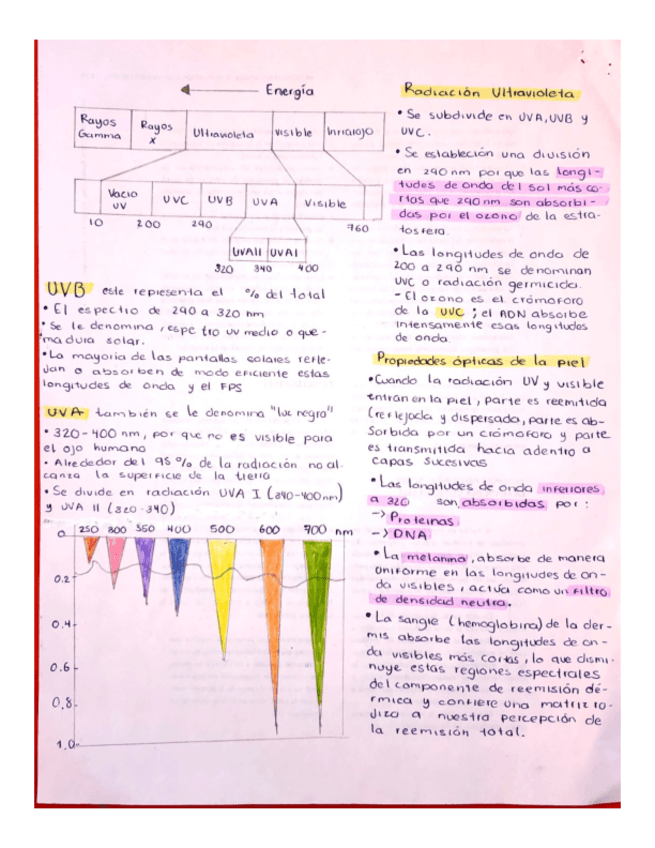 Energía
Rayos Gamma
Rayos X
Ultravioleta
visible
Infrarojo
Vacio UV
UVC
UVB
UVA
Visible
10
200
290
760
UVAII
UVAI
320
340
400
UVB este representa el % del total
• El espectro de 290 a 320 nm
• Se le denomina espectro uv medio o que-
madura solar.
• La mayoria de las pantallas solares refle-
jan o absorben de modo eficiente estas
longitudes de onda y el FPS
UVA también se le denomina "luz negra"
• 320-400 nm, por que no es visible para
el ojo humano
• Alrededor del 95% de la radiación no al-
canza la superficie de la tierra
• Se divide en radiación UVA I (340-400nm)
y UVA II (320-340)
250 300 350 400 500 600 700 nm
0
0.2
0.4
0.6
0.8
1.0
Radiación Ultravioleta
• Se subdivide en UVA, UVB y
UVC.
• Se estableción una división
en 290 nm por que las longi-
tudes de onda del sol más co-
rtas que 290 nm son absorbi-
das por el ozono de la estra-
tosfera.
• Las longitudes de onda de
200 a 290 nm se denominan
UVC o radiación germicida.
- El ozono es el cromoforo
de la UVC ; el ADN absorbe
intensamente esas longitudes
de onda.
Propiedades ópticas de la piel
• Cuando la radiación UV y visible
entran en la piel, parte es reemitida
(reflejada y dispersada, parte es ab-
sorbida por un cromoforo y parte
es transmitida hacia adentro a
capas sucesivas
• Las longitudes de onda inferiores
a 320 son absorbidas por:
-> Proteinas
-> DNA
• La melanina, absorbe de manera
uniforme en las longitudes de on-
da visibles, actúa como un filtro
de densidad neutra.
• La sangre (hemoglobina) de la der-
mis absorbe las longitudes de on-
da visibles más cortas, lo que dismi-
nuye estas regiones espectrales
del componente de reemisión dé-
rmica y confiere una matriz ro-
jiza a nuestra percepción de
la reemisión total.